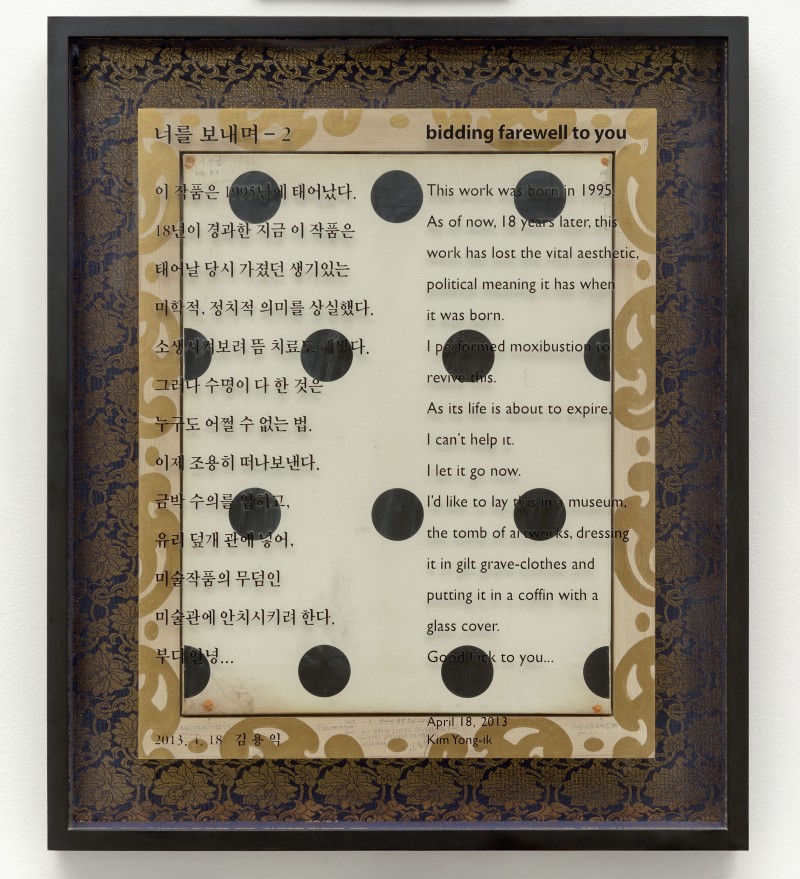 너를 보내며 – 2
이 작품은 1995년에 태어났다.
18년이 경과한 지금 이 작품은
태어날 당시 가졌던 생기있는
미학적, 정치적 의미를 상실했다.
소생시켜보려 뜸 치료도 해봤다.
그러나 수명이 다 한 것은
누구도 어쩔 수 없는 법.
이제 조용히 떠나보낸다.
금박 수의를 입히고,
유리 덮개 관에 넣어,
미술작품의 무덤인
미술관에 안치시키려 한다.
부디 안녕...
2013. 4. 18 김용익
bidding farewell to you
This work was born in 1995.
As of now, 18 years later, this
work has lost the vital aesthetic,
political meaning it has when
it was born.
I performed moxibustion to
revive this.
As its life is about to expire,
I can't help it.
I let it go now.
I'd like to lay this in a museum,
the tomb of artworks, dressing
it in gilt grave-clothes and
putting it in a coffin with a
glass cover.
Good luck to you...
April 18, 2013
Kim Yong-ik